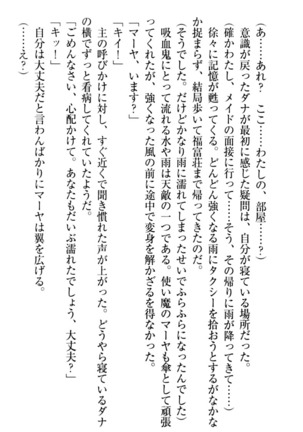 (あ……あれ？　ここ……わたしの、部屋……？)
意識が戻ったダナが最初に感じた疑問は、自分が寝ている場所だった。
(確かわたし、メイドの面接に行って……そう、その帰りに雨が降ってきて……)
徐々に記憶が甦ってくる。どんどん強くなる雨にタクシーを拾おうとするがなかな
か捕まらず、結局歩いて福富荘まで帰ってきたのだ。
(そうでした。だけどかなり雨に濡れてしまったせいでふらふらになったんでした)
吸血鬼にとって流れる水や雨は天敵の一つである。使い魔のマーヤも傘として頑張
ってくれたが、強くなった風の前に途中で変身を解かざるを得なかった。
「マーヤ、います？」
「キイー！」
主の呼びかけに対し、すぐ近くで聞き慣れた声が上がった。どうやら寝ているダナ
の横でずっと看病してくれていたようだ。
「ごめんなさい、心配かけて。あなたもだいぶ濡れたでしょう、大丈夫？」
「キッー！」
自分は大丈夫だと言わんばかりにマーヤは翼を広げる。
(……え？)